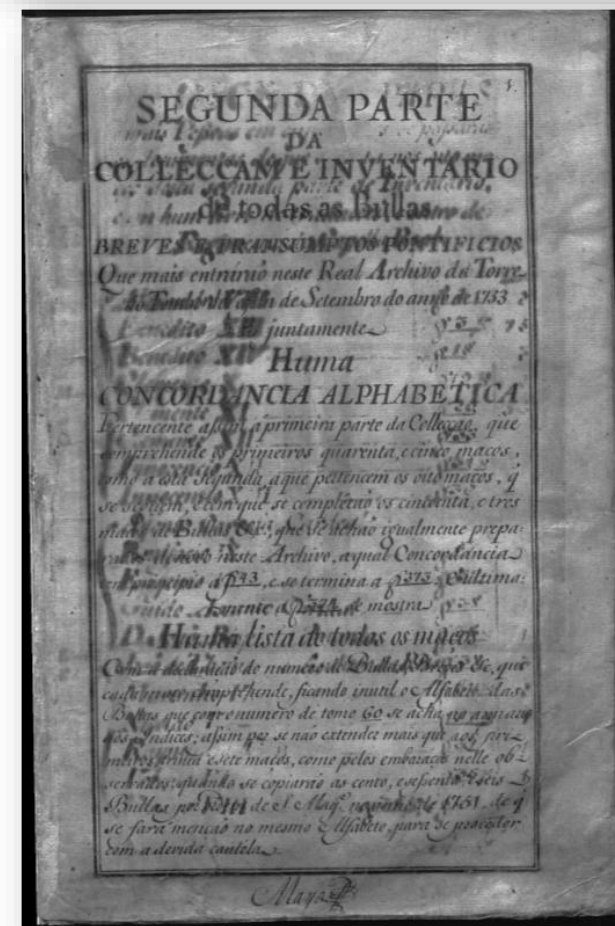 1.
SEGUNDA PARTE
DA
COLLECCAM E INVENTARIO
de todas as Bullas
BREVES E TRANSUMPTOS PONTIFICIOS
Que mais entrárão neste Real Archivo da Torre
do Tombo de Setembro do anno de 1753
juntamente
Huma
CONCORDANCIA ALPHABETICA
Pertencente assim a primeira parte da Collecção, que
comprehende os primeiros quarenta, e cinco maços,
como a esta Segunda, a que pertencem os oito maços, q̃
se seguem, e com que se completão os cincoenta, e tres
maços de Bullas &c, que se achão igualmente prepa-
rados de novo neste Archivo, a qual Concordancia
tem principio a p. 43, e se termina a p. 373. E ultima-
mente a p. 374 se mostra
Huma lista de todos os maços
Com a declaração do numero de Bullas, Breves &c, que
cada hum comprehende, ficando inutil o Alfabeto das
Bullas que com o numero de tomo 60 se acha no armazem
dos Indices; assim por se não extender mais que aos pri-
meiros trinta e sete maços, como pelos embaraços nelle ob-
servados, quando se copiarão as cento, e sessenta, e seis
Bullas por de S. Mag.e de 1751, de q̃
se fará menção no mesmo Alfabeto, para se proceder
com a devida cautela.
Maya